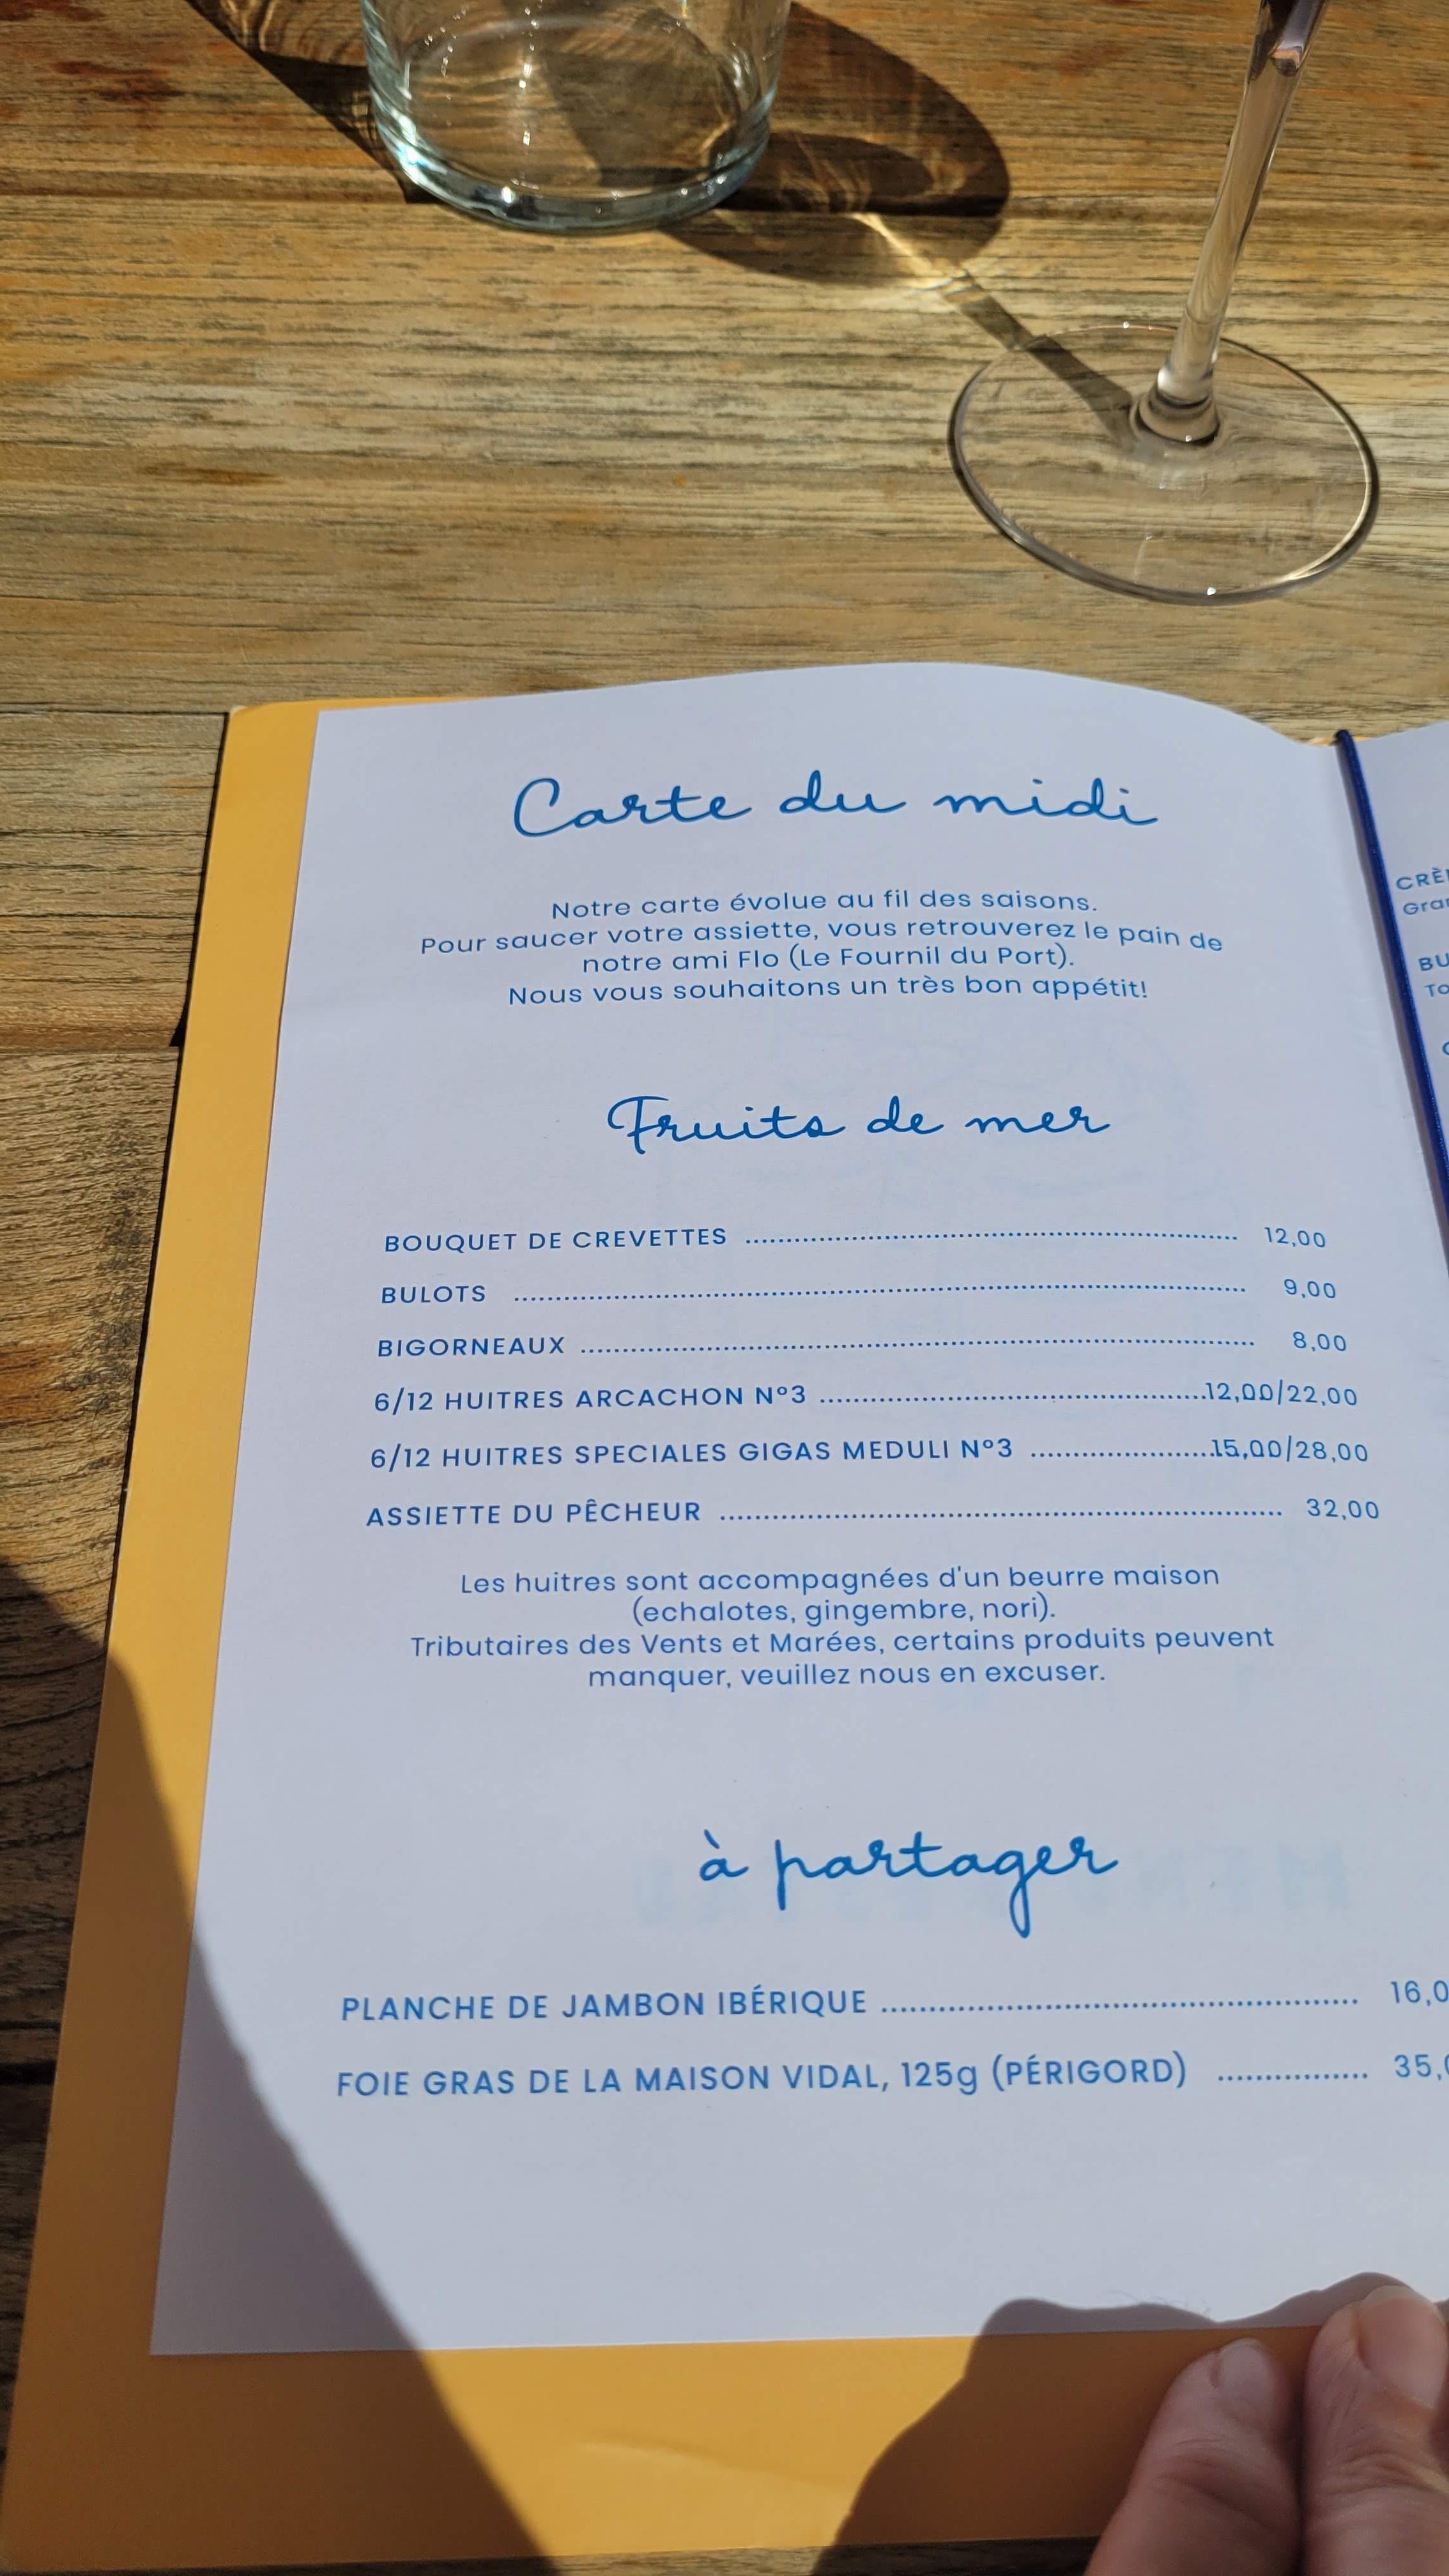 Carte du midi
Notre carte évolue au fil des saisons.
Pour saucer votre assiette, vous retrouverez le pain de
notre ami Flo (Le Fournil du Port).
Nous vous souhaitons un très bon appétit!
Fruits de mer
BOUQUET DE CREVETTES ............................................................ 12,00
BULOTS ............................................................ 9,00
BIGORNEAUX ............................................................ 8,00
6/12 HUITRES ARCACHON Nº3 ...............................................12,00/22,00
6/12 HUITRES SPECIALES GIGAS MEDULI Nº3 ......................15,00/28,00
ASSIETTE DU PÊCHEUR ............................................................ 32,00
Les huitres sont accompagnées d'un beurre maison
(echalotes, gingembre, nori).
Tributaires des Vents et Marées, certains produits peuvent
manquer, veuillez nous en excuser.
à partager
PLANCHE DE JAMBON IBÉRIQUE .................................................. 16,0
FOIE GRAS DE LA MAISON VIDAL, 125g (PÉRIGORD) ................ 35,